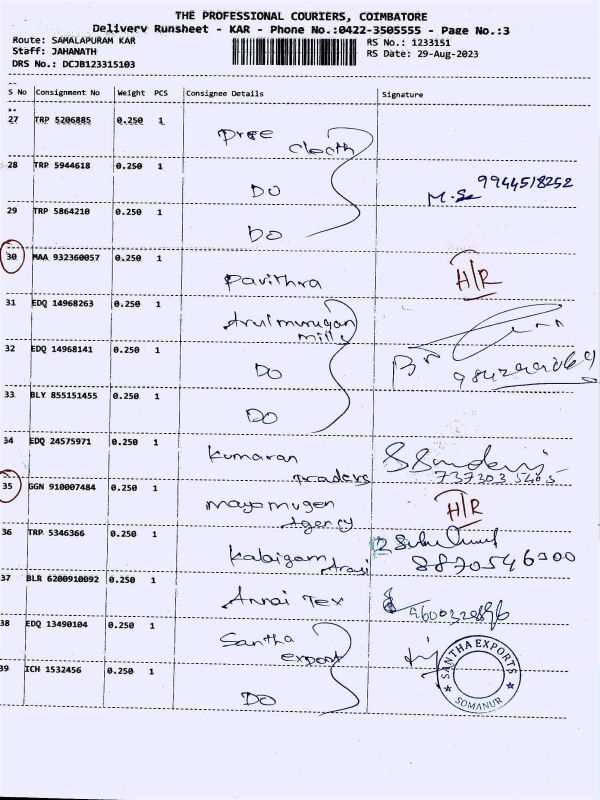 THE PROFESSIONAL COURIERS, COIMBATORE
Delivery Runsheet - KAR - Phone No.:0422-3505555 - Page No.:3
Route: SAMALAPURAM KAR
RS No.: 1233151
Staff: JAHANATH
RS Date: 29-Aug-2023
DRS No.: DCJB123315103
S No Consignment No Weight PCS Consignee Details Signature
27 TRP 5206885 0.250 1
Pree Cloath
28 TRP 5944618 0.250 1
DO 9944518252
29 TRP 5864210 0.250 1
DO
30 MAA 932360057 0.250 1
Pavithra H/R
31 EDQ 14968263 0.250 1
Arulmurugan
mills
32 EDQ 14968141 0.250 1
DO
33 BLY 855151455 0.250 1
DO
34 EDQ 24575971 0.250 1
Kumaran
Traders
35 GGN 910007484 0.250 1
H/R
Agency
36 TRP 5346366 0.250 1
8870546300
37 BLR 6200910092 0.250 1
Annai Tex
38 EDQ 13490104 0.250 1
Santha
export
SANTHA EXPORTS
SOMANUR
39 ICH 1532456 0.250 1
DO